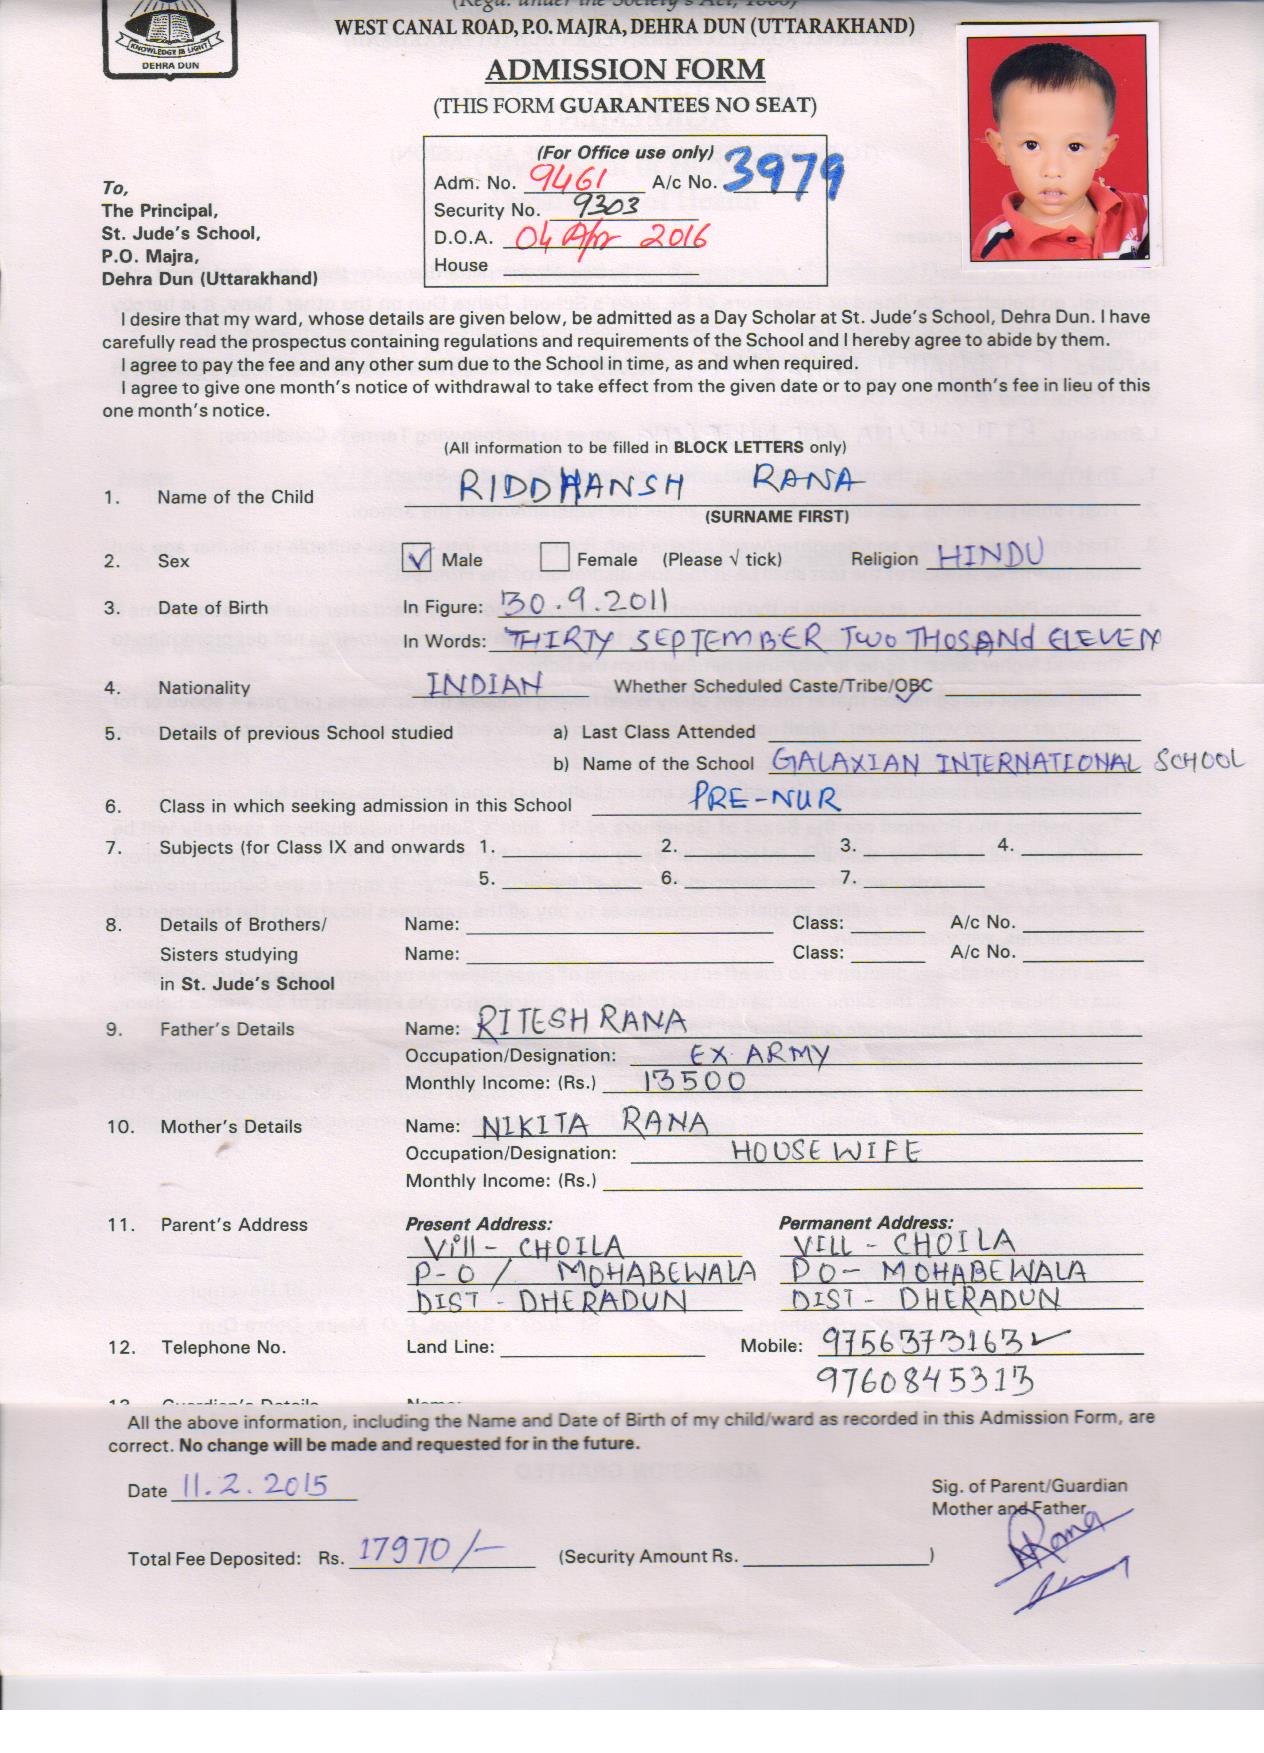 (Regd. under the Society's Act, 1860)
WEST CANAL ROAD, P.O. MAJRA, DEHRA DUN (UTTARAKHAND)
KNOWLEDGE IS LIGHT
DEHRA DUN
ADMISSION FORM
(THIS FORM GUARANTEES NO SEAT)
(For Office use only)
Adm. No. 9461 A/c No. 3979
Security No. 9303
D.O.A. 04 Apr 2016
House
To,
The Principal,
St. Jude's School,
P.O. Majra,
Dehra Dun (Uttarakhand)
I desire that my ward, whose details are given below, be admitted as a Day Scholar at St. Jude's School, Dehra Dun. I have
carefully read the prospectus containing regulations and requirements of the School and I hereby agree to abide by them.
I agree to pay the fee and any other sum due to the School in time, as and when required.
I agree to give one month's notice of withdrawal to take effect from the given date or to pay one month's fee in lieu of this
one month's notice.
(All information to be filled in BLOCK LETTERS only)
1. Name of the Child RIDDHANSH RANA
(SURNAME FIRST)
2. Sex ✓ Male Female (Please √ tick) Religion HINDU
3. Date of Birth In Figure: 30.9.2011
In Words: THIRTY SEPTEMBER TWO THOSANd ELEVEN
4. Nationality INDIAN Whether Scheduled Caste/Tribe/OBC
5. Details of previous School studied a) Last Class Attended
b) Name of the School GALAXIAN INTERNATIONAL SCHOOL
6. Class in which seeking admission in this School PRE-NUR
7. Subjects (for Class IX and onwards 1. 2. 3. 4.
5. 6. 7.
8. Details of Brothers/ Name: Class: A/c No.
Sisters studying Name: Class: A/c No.
in St. Jude's School
9. Father's Details Name: RITESH RANA
Occupation/Designation: EX ARMY
Monthly Income: (Rs.) 13500
10. Mother's Details Name: NIKITA RANA
Occupation/Designation: HOUSE WIFE
Monthly Income: (Rs.)
11. Parent's Address Present Address: Permanent Address:
Vill - CHOILA VILL - CHOILA
P-O / MOHABEWALA PO - MOHABEWALA
DIST - DHERADUN DIST - DHERADUN
12. Telephone No. Land Line: Mobile: 9756373163 ✓
9760845313
13. Guardian's Details Name:
All the above information, including the Name and Date of Birth of my child/ward as recorded in this Admission Form, are
correct. No change will be made and requested for in the future.
Date 11.2.2015
Sig. of Parent/Guardian
Mother and Father
Rana
Total Fee Deposited: Rs. 17970/- (Security Amount Rs. )